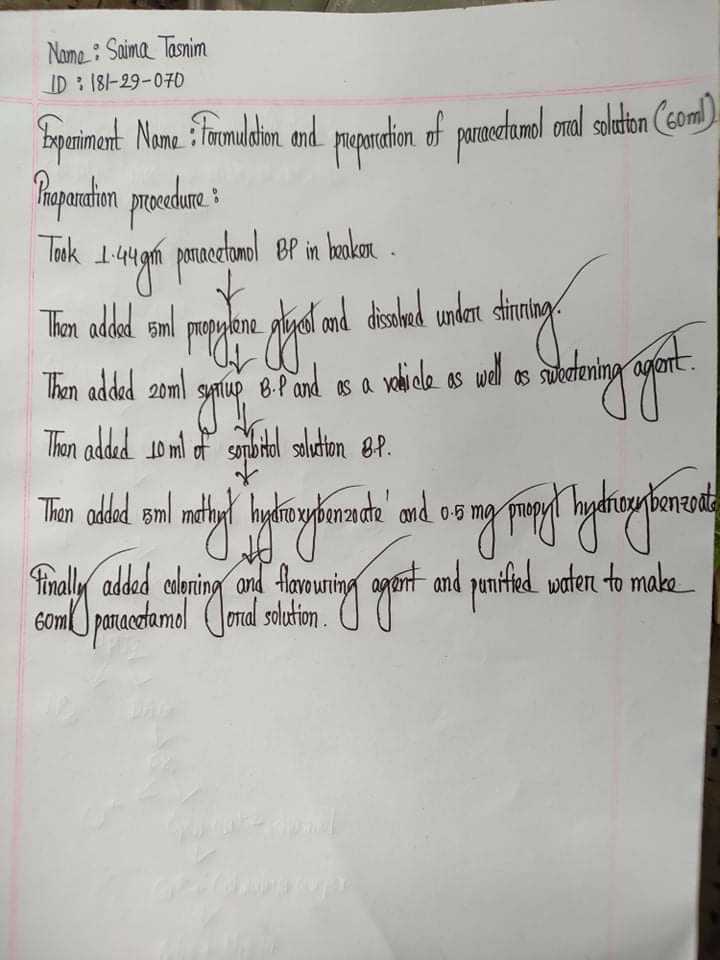 Name : Saima Tasnim
ID : 181-29-070
Experiment Name : Formulation and preparation of paracetamol oral solution (60ml)
Preparation procedure :
Took 1.44gm paracetamol BP in beaker .
Then added 5ml propylene glycol and dissolved under stirring.
Then added 20ml syrup B.P and as a vehicle as well as sweetening agent.
Then added 10ml of sorbitol solution B.P.
Then added 5ml methyl hydroxybenzoate' and 0.5 mg propyl hydroxybenzoate
Finally added coloring and flavouring agent and purified water to make
60ml paracetamol oral solution .